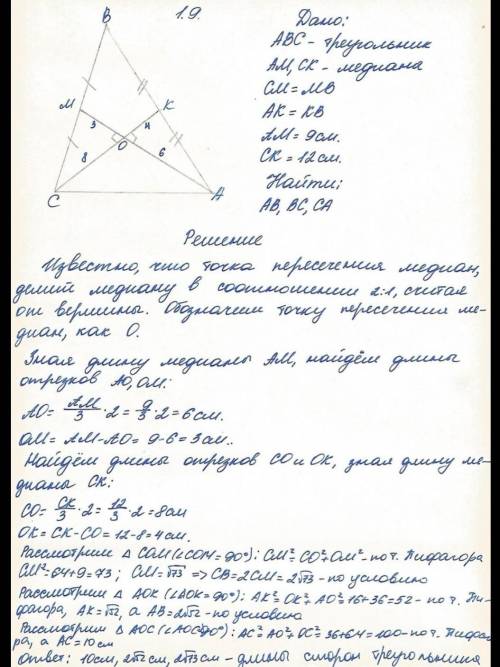 19.
B
M
K
3
4
O
8
6
C
A
Дано:
ABC - треугольник
AM, CK - медиана
CM = MB
AK = KB
AM = 9см.
CK = 12см.
Найти;
AB, BC, CA
Решение
Известно, что точка пересечения медиан,
делит медиану в соотношении 2:1, считая
от вершины. Обозначим точку пересечения ме-
диан, как O.
Зная длину медианы AM, найдём длины
отрезков AO, OM:
AO = AM/3 · 2 = 9/3 · 2 = 6см.
OM = AM - AO = 9 - 6 = 3см..
Найдём длины отрезков CO и OK, зная длину ме-
дианы CK:
CO = CK/3 · 2 = 12/3 · 2 = 8см
OK = CK - CO = 12 - 8 = 4см.
Рассмотрим △ COM (∠COM = 90°): CM² = CO² + OM² - по т. Пифагора
CM² = 64 + 9 = 73; CM = √73 => CB = 2CM = 2√73 - по условию
Рассмотрим △ AOK (∠AOK = 90°): AK² = OK² + AO² = 16 + 36 = 52 - по т. Пи-
фагора, AK = √52, а AB = 2√52 - по условию
Рассмотрим △ AOC (∠AOC = 90°): AC² = AO² + OC² = 36 + 64 = 100 - по т. Пифаго-
ра, а AC = 10см
Ответ: 10см, 2√52 см, 2√73 см - длины сторон треугольника